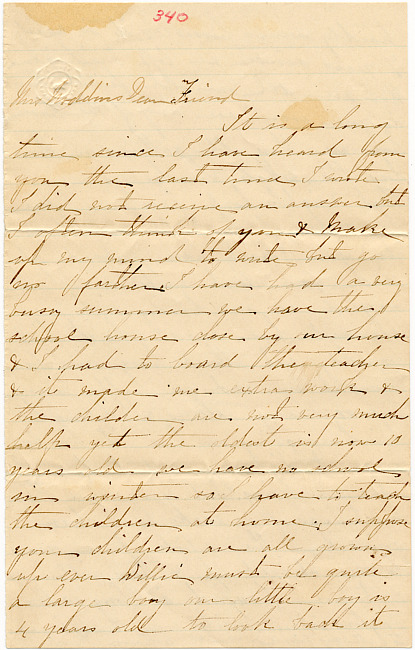 340
Mrs Robbins Dear Friend
It is a long
time since I have heard from
you the last time I wrote
I did not receive an answer but
I often think of you & Make
up my mind to write but go
no farther. I have had a very
busy summer we have the
school house close by our house
& I had to board the teacher
& it made me extra work &
the children are not very much
help yet the oldest is now 10
years old we have no school
in winter so I have to teach
the children at home. I suppose
your children are all grown
up ever Willie must be quite
a large boy our little boy is
4 years old to look back it